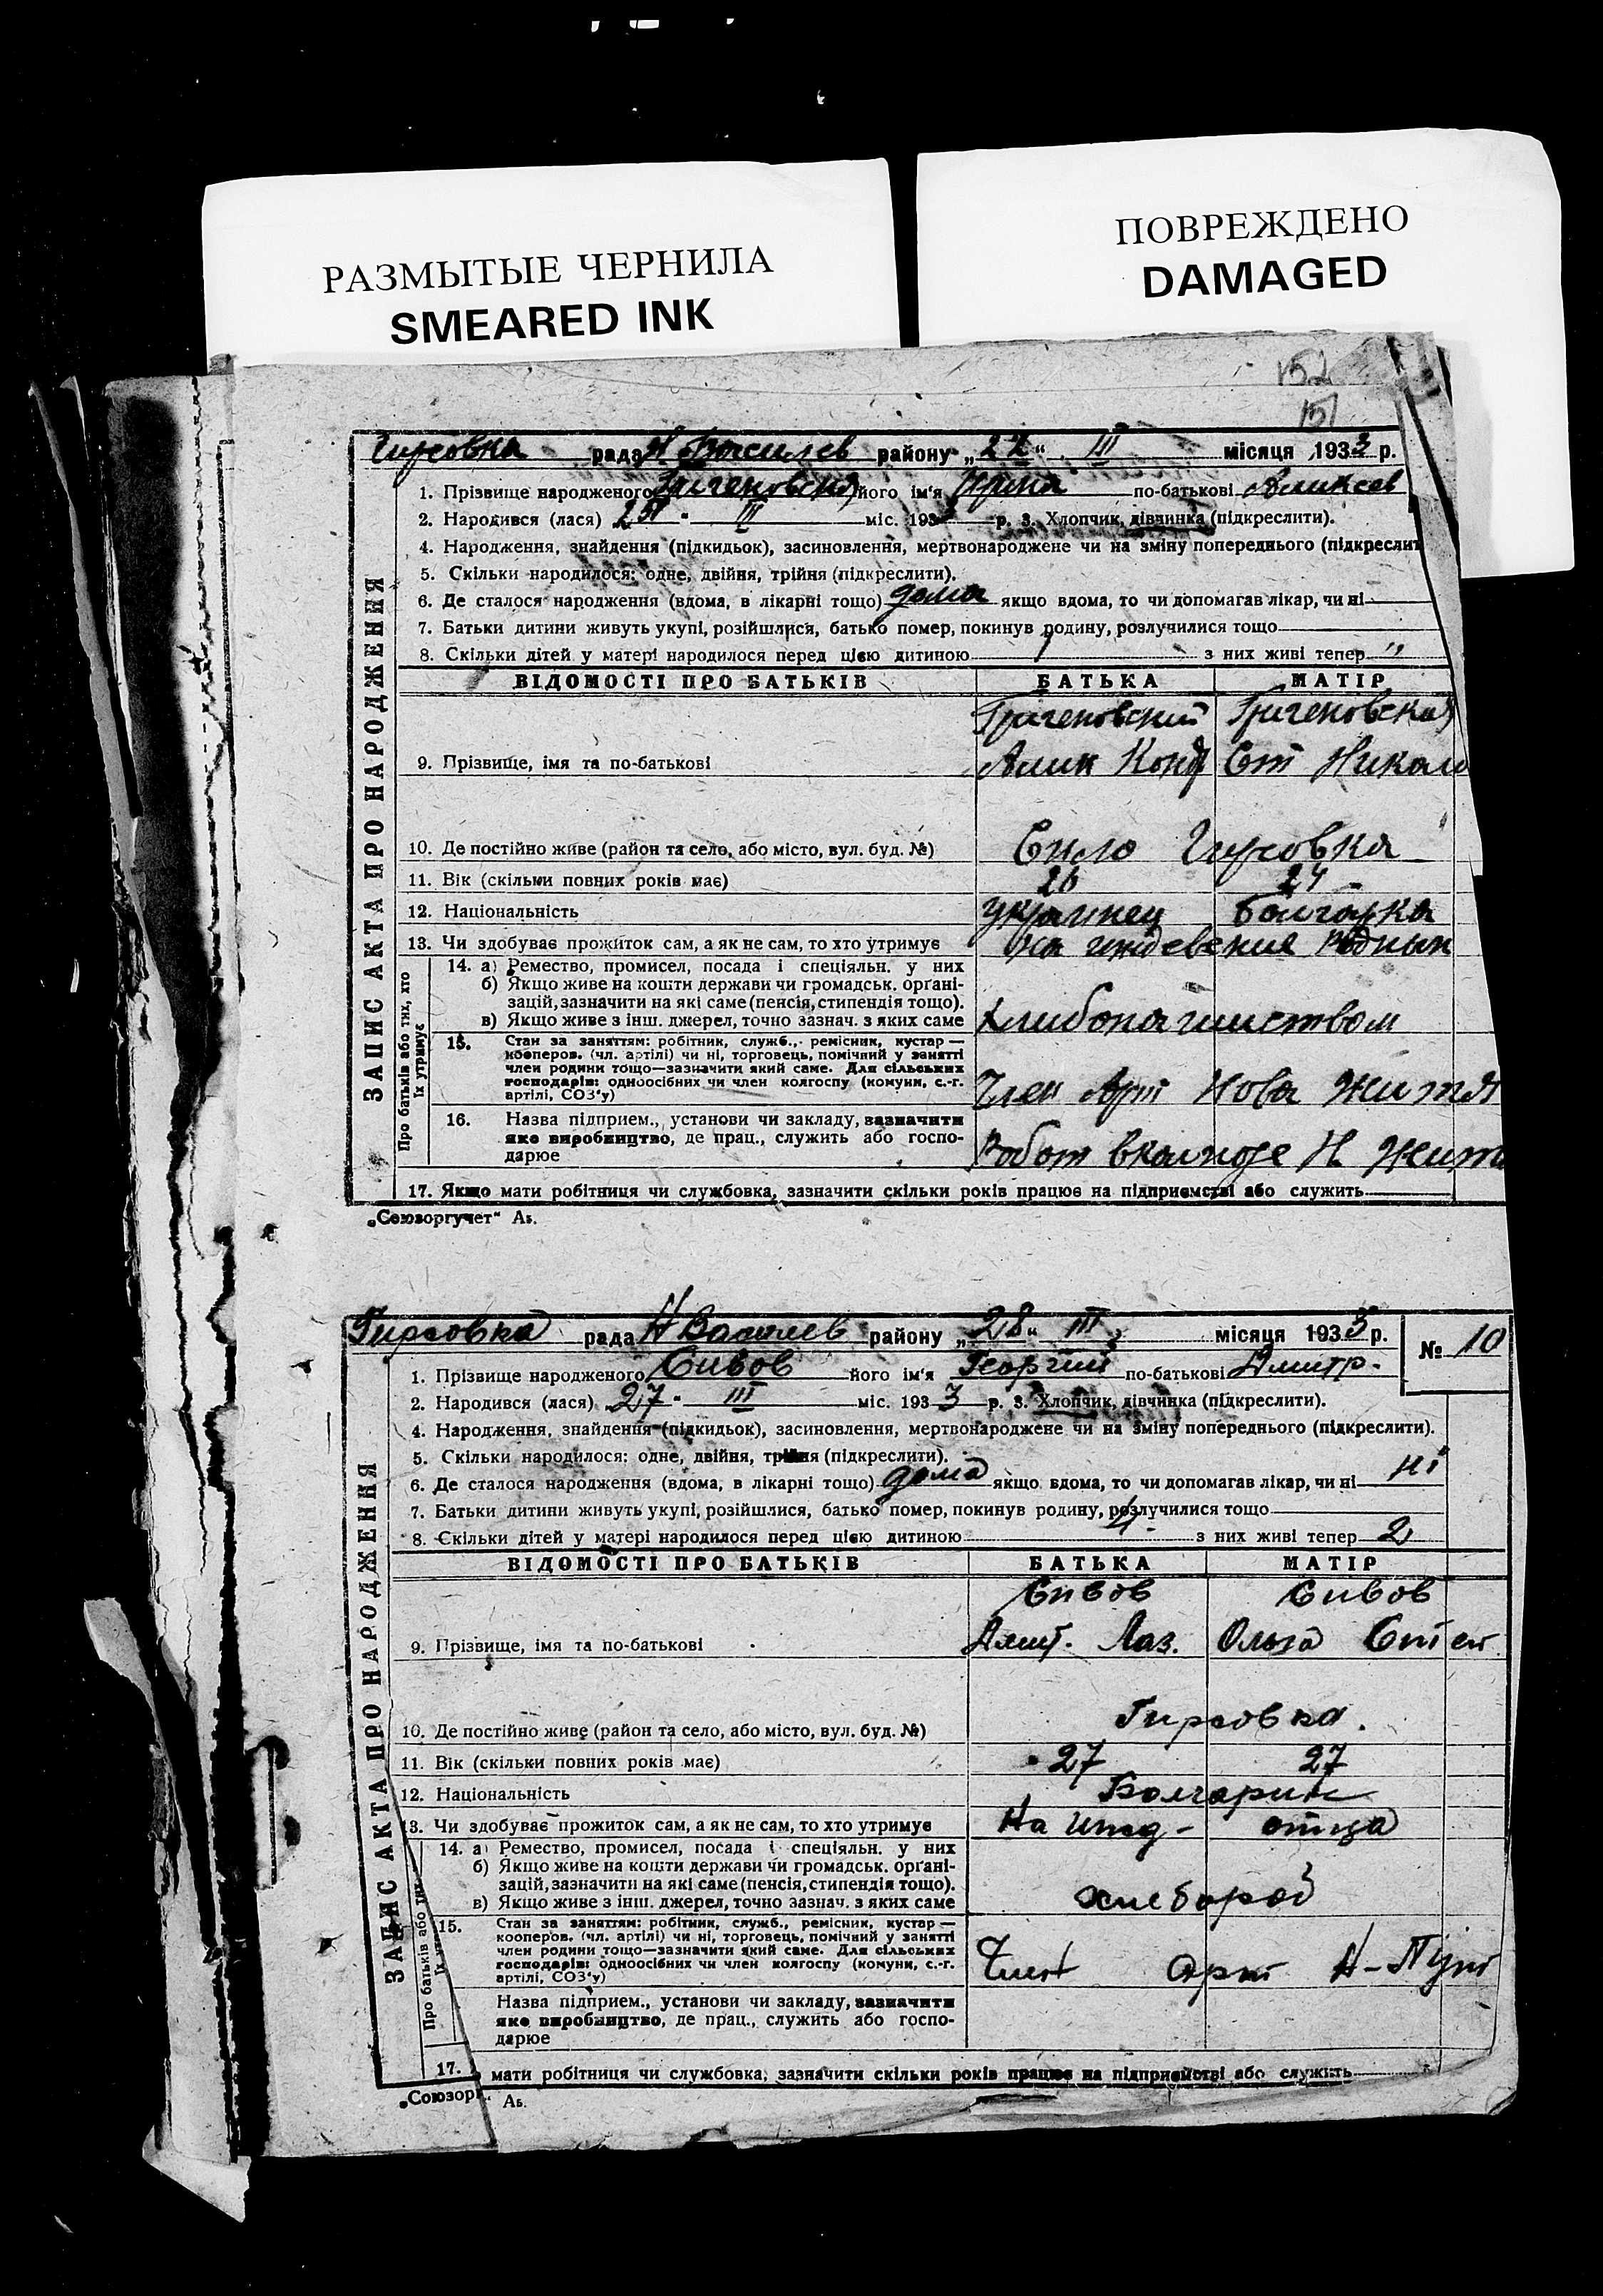 РАЗМЫТЫЕ ЧЕРНИЛА
SMEARED INK
ПОВРЕЖДЕНО
DAMAGED
152
151
Гирсовка рада Н Василев району „22“ III місяця 1933 р.
1. Прізвище народженого його ім'я по-батькові Алексев
2. Народився (лася) III міс. 193 р. 3. Хлопчик, дівчинка (підкреслити).
4. Народження, знайдення (підкидьок), засиновлення, мертвонароджене чи на зміну попереднього (підкреслит
5. Скільки народилося: одне, двійня, трійня (підкреслити).
6. Де сталося народження (вдома, в лікарні тощо) дома якщо вдома, то чи допомагав лікар, чи ні
7. Батьки дитини живуть укупі, розійшлися, батько помер, покинув родину, розлучилися тощо
8. Скільки дітей у матері народилося перед цією дитиною 1 з них живі тепер "
ЗАПИС АКТА ПРО НАРОДЖЕННЯ
ВІДОМОСТІ ПРО БАТЬКІВ БАТЬКА МАТІР
Григеновский Григеновская
9. Прізвище, імя та по-батькові Алик Конд Ст Никол
10. Де постійно живе (район та село, або місто, вул. буд. №) Село Гирсовка
11. Вік (скільки повних років має) 26 24
12. Національність Украинец болгарка
13. Чи здобуває прожиток сам, а як не сам, то хто утримує На иждевение Родных
Про батьків або тих, хто їх утримує
14. а) Ремество, промисел, посада і спеціяльн. у них
б) Якщо живе на кошти держави чи громадськ. органі-
зацій, зазначити на які саме (пенсія, стипендія тощо).
в) Якщо живе з інш. джерел, точно зазнач. з яких саме
15. Стан за заняттям: робітник, служб., ремісник, кустар —
кооперов. (чл. артілі) чи ні, торговець, помічний у занятті
член родини тощо—зазначити який саме. Для сільських
господарів: одноосібних чи член колгоспу (комуни, с.-г.
артілі, СОЗ'у) Член Арт Нова Життя
16. Назва підприєм., установи чи закладу, зазначити
яке виробництво, де прац., служить або госпо-
дарює Робот вколгозе Н Житт
17. Якщо мати робітниця чи службовка, зазначити скільки років працює на підприємстві або служить
„Союзоргучет“ Аь.
Гирсовка рада Н Василев району „28“ III місяця 1933 р. № 10
1. Прізвище народженого Сивов його ім'я Георгий по-батькові Дмитр.
2. Народився (лася) 27 III міс. 1933 р. 3. Хлопчик, дівчинка (підкреслити).
4. Народження, знайдення (підкидьок), засиновлення, мертвонароджене чи на зміну попереднього (підкреслити).
5. Скільки народилося: одне, двійня, трійня (підкреслити).
6. Де сталося народження (вдома, в лікарні тощо) дома якщо вдома, то чи допомагав лікар, чи ні ні
7. Батьки дитини живуть укупі, розійшлися, батько помер, покинув родину, розлучилися тощо
8. Скільки дітей у матері народилося перед цією дитиною 4 з них живі тепер 2
ЗАПИС АКТА ПРО НАРОДЖЕННЯ
ВІДОМОСТІ ПРО БАТЬКІВ БАТЬКА МАТІР
Сивов Сивов
9. Прізвище, імя та по-батькові Дмит. Лаз. Ольга Степ
10. Де постійно живе (район та село, або місто, вул. буд. №) Гирсовка.
11. Вік (скільки повних років має) 27 27
12. Національність Болгарин
13. Чи здобуває прожиток сам, а як не сам, то хто утримує На ижд- отца
Про батьків або тих
14. а) Ремество, промисел, посада і спеціяльн. у них
б) Якщо живе на кошти держави чи громадськ. органі-
зацій, зазначити на які саме (пенсія, стипендія тощо).
в) Якщо живе з інш. джерел, точно зазнач. з яких саме хлебороб
15. Стан за заняттям: робітник, служб., ремісник, кустар —
кооперов. (чл. артілі) чи ні, торговець, помічний у занятті
член родини тощо—зазначити який саме. Для сільських
господарів: одноосібних чи член колгоспу (комуни, с.-г.
артілі, СОЗ'у) Член Арт Н-Путь
Назва підприєм., установи чи закладу, зазначити
яке виробництво, де прац., служить або госпо-
дарює
17. мати робітниця чи службовка, зазначити скільки років працює на підприємстві або служить
„Союзор Аь.